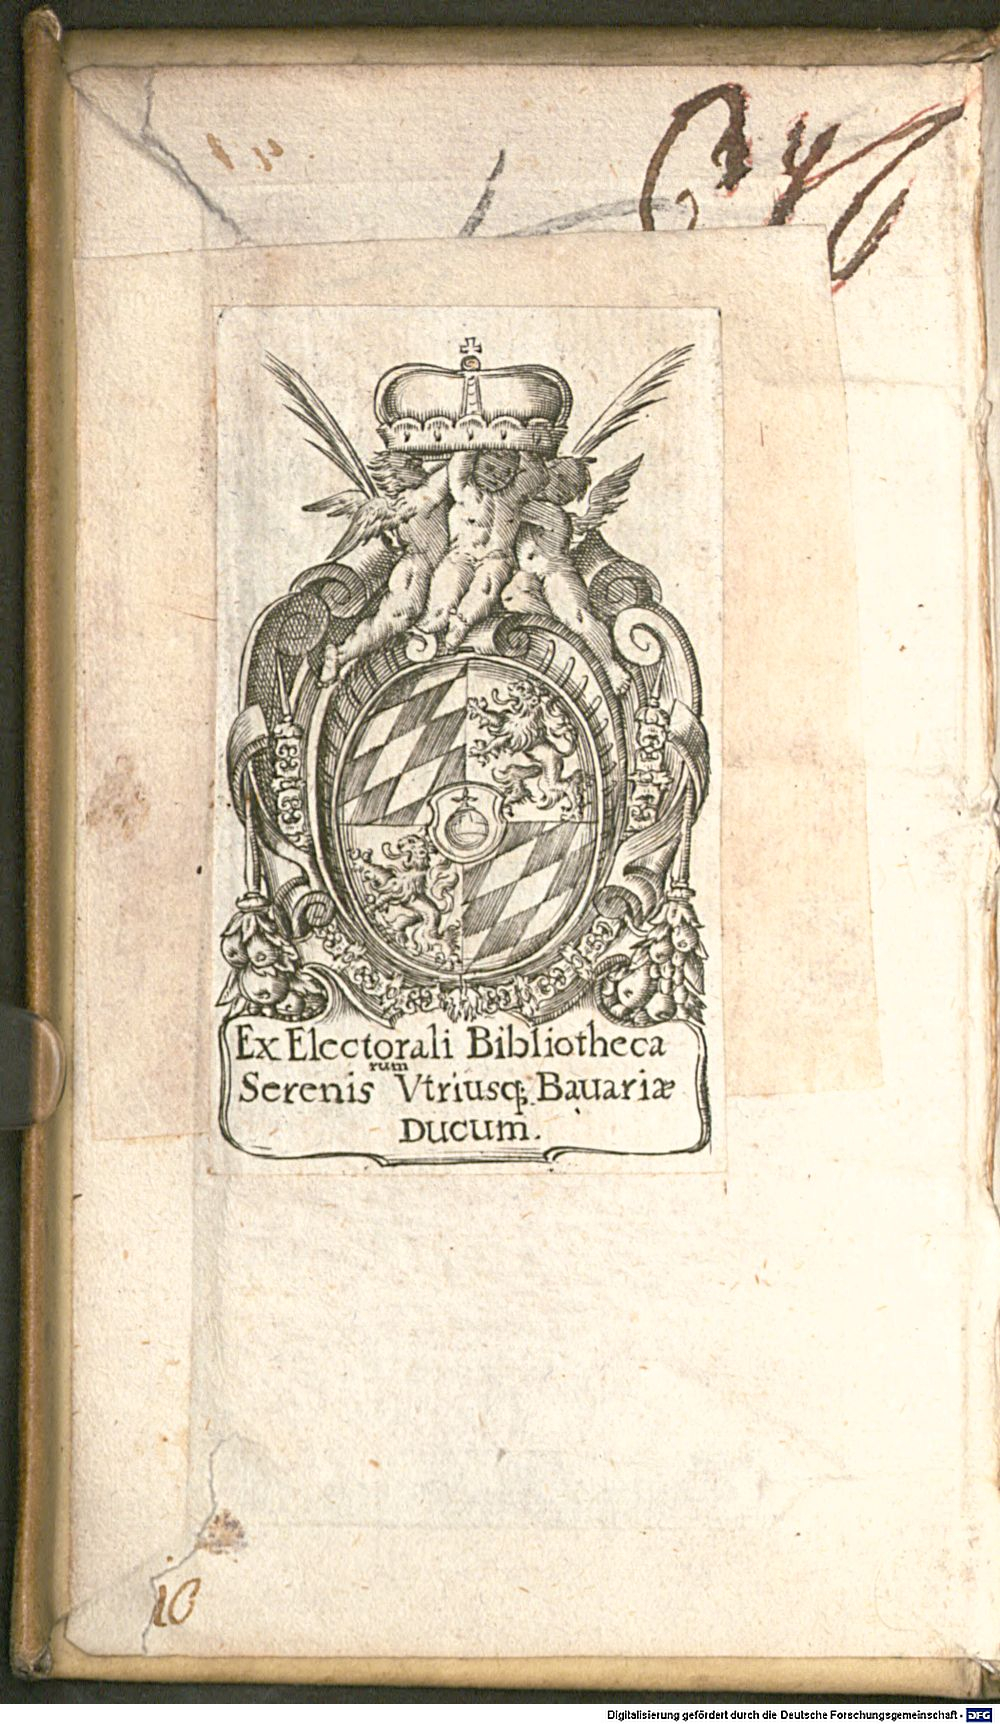 Ex Electorali Bibliotheca
Serenis rum Vtriusq; Bauariæ
Ducum.
10
Digitalisierung gefördert durch die Deutsche Forschungsgemeinschaft - DFG